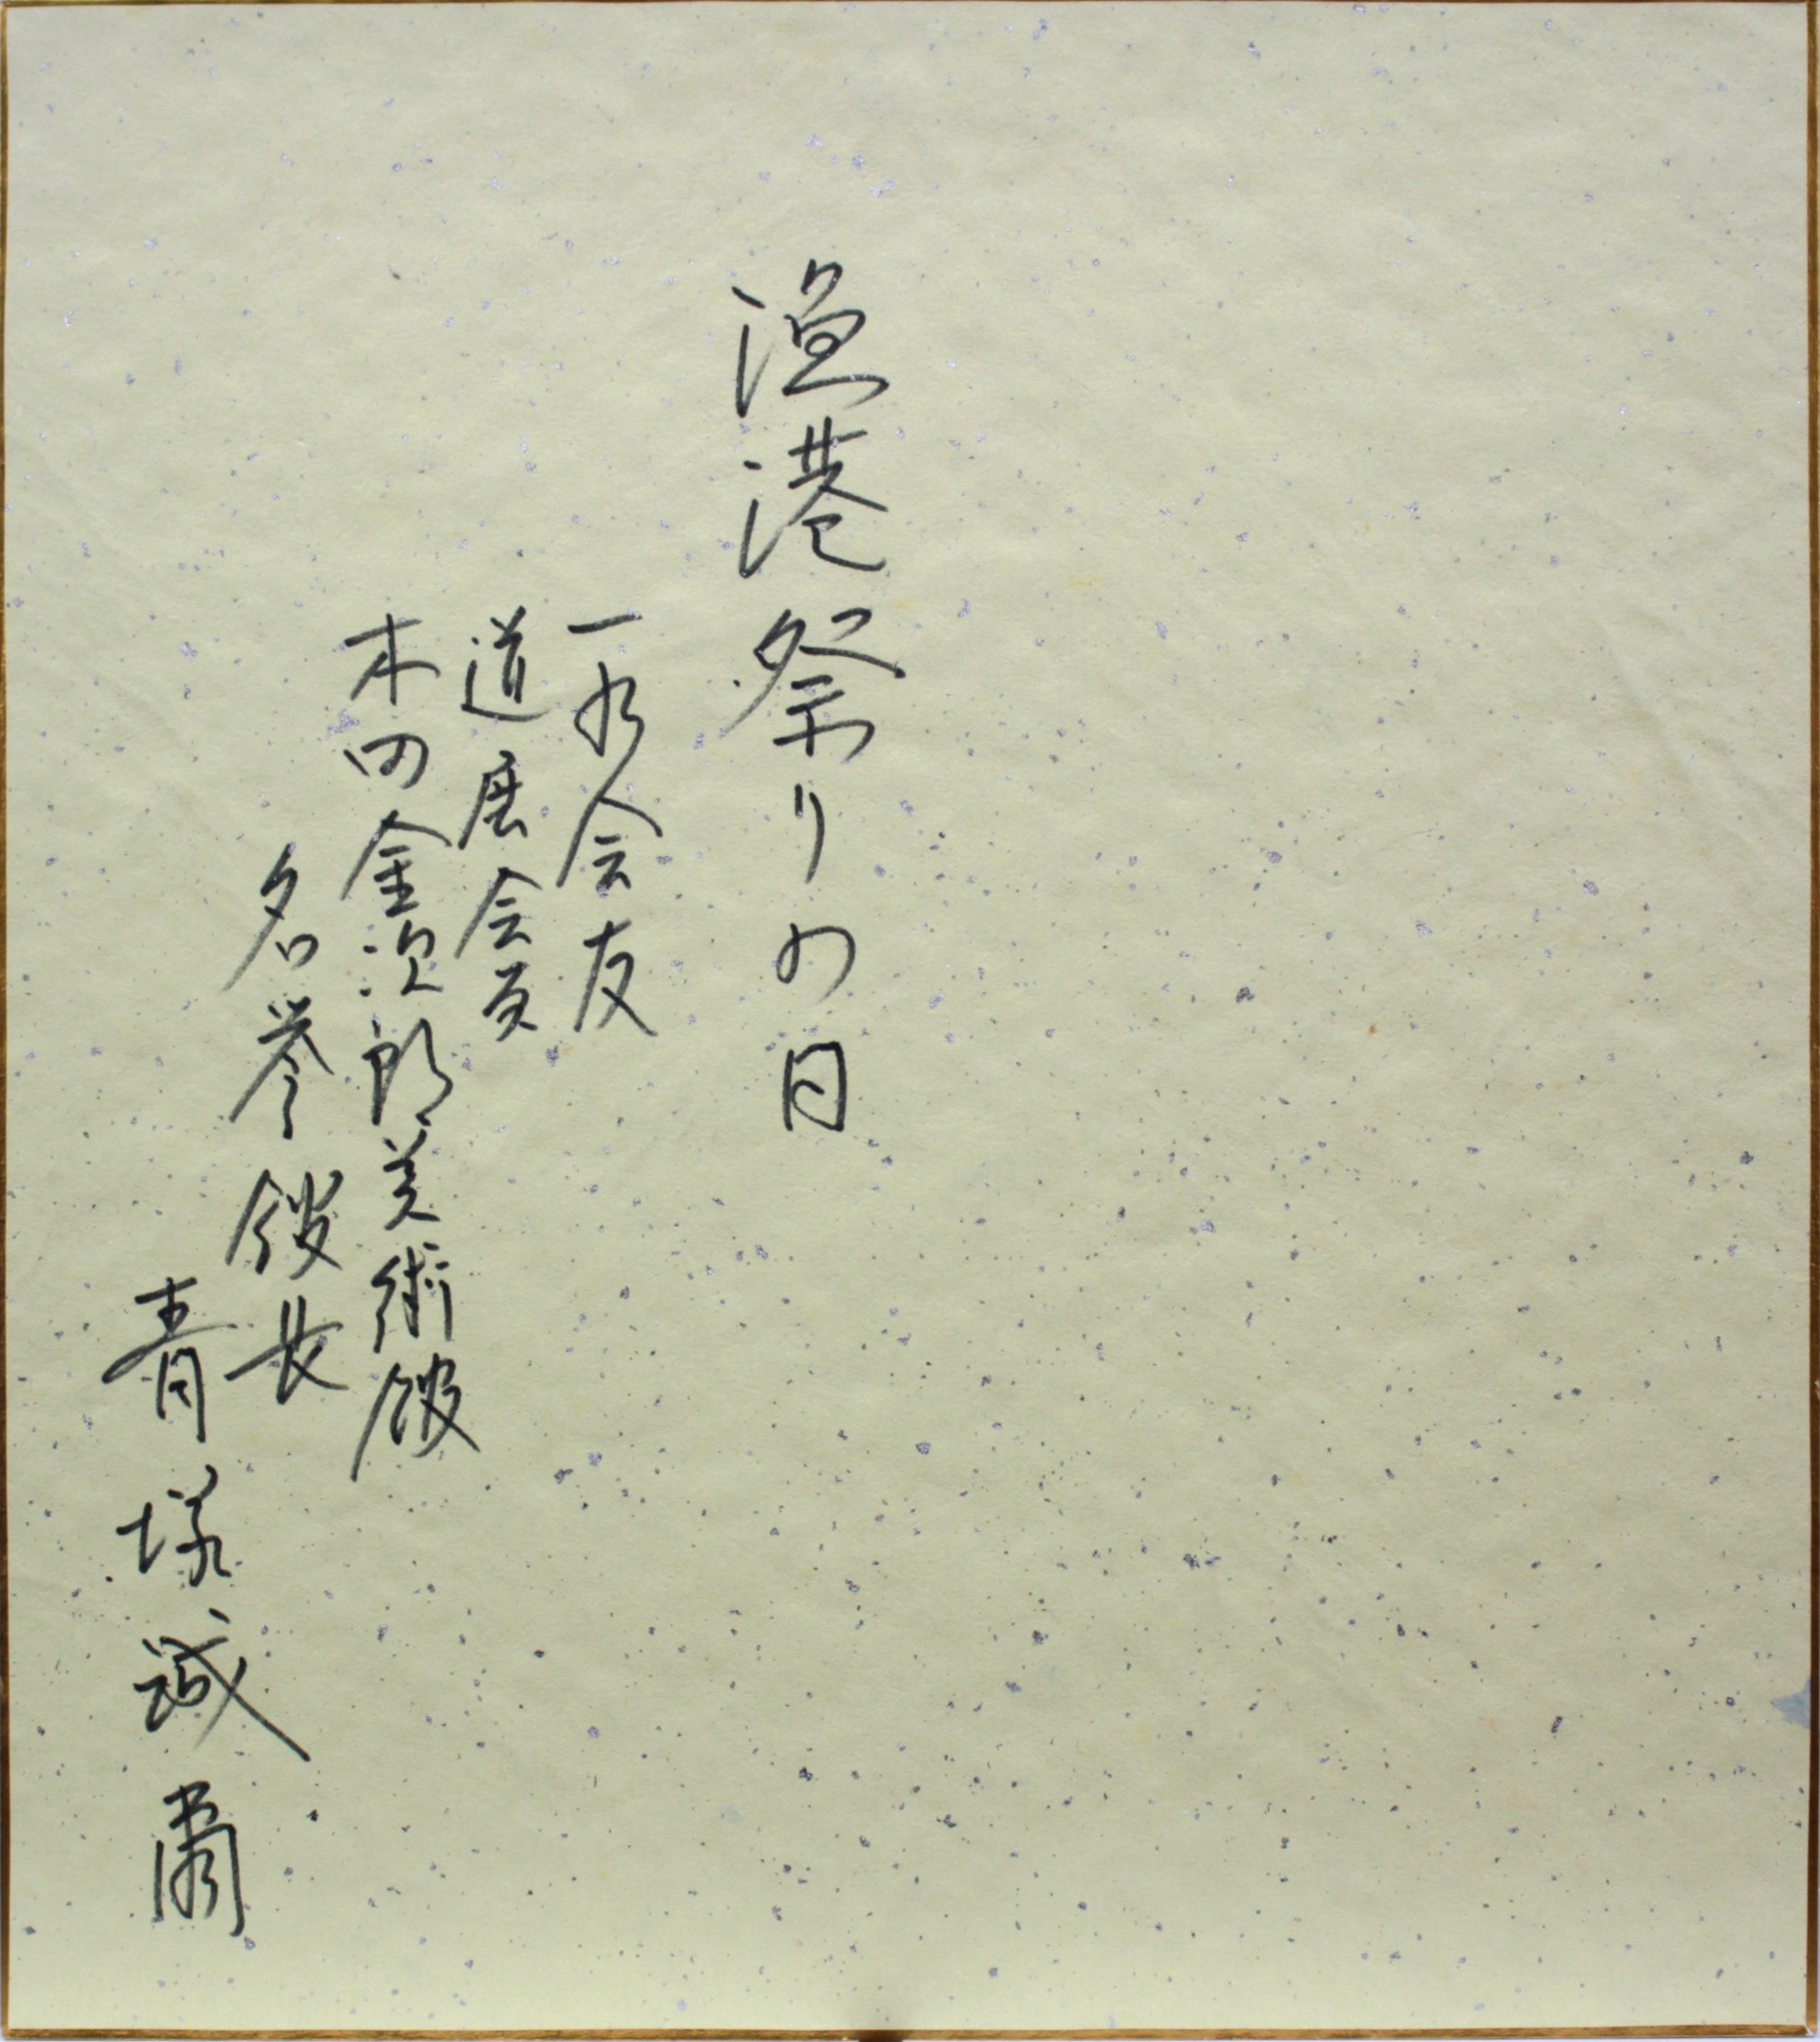 漁港祭りの日
一水会会友
道展会員
木田金次郎美術館
名誉館長
青塚誠爾